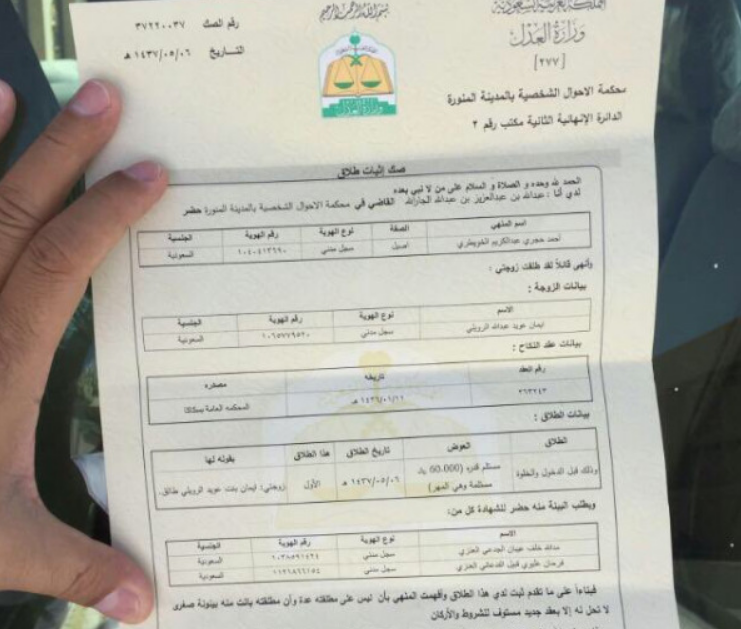 المملكة العربية السعودية
وزارة العدل
[٢٧٧]
محكمة الاحوال الشخصية بالمدينة المنورة
الدائرة الإنهائية الثانية مكتب رقم ٣
بسم الله الرحمن الرحيم
وزارة العدل
رقم الصك ٣٧٢٢٠٠٣٧
التـــاريخ ١٤٣٧/٠٥/٠٦ هـ
صك إثبات طلاق
الحمد لله وحده و الصلاة و السلام على من لا نبي بعده
لدي أنا : عبدالله بن عبدالعزيز بن عبدالله الجارالله القاضي في محكمة الاحوال الشخصية بالمدينة المنورة حضر
اسم المنهي الصفة نوع الهوية رقم الهوية الجنسية
أحمد حجري عبدالكريم اصيل سجل مدني السعودية
وأنهى قائلاً لقد طلقت زوجتي :
بيانات الزوجة :
الاسم نوع الهوية رقم الهوية الجنسية
ايمان عويد عبدالله الرويلي سجل مدني السعودية
بيانات عقد النكاح :
رقم العقد تاريخه مصدره
٢٦٣٢٤٣ ١٤٣٦/٠١/١١ هـ المحكمه العامة بسكاكا
بيانات الطلاق :
الطلاق العوض تاريخ الطلاق هذا الطلاق بقوله لها
وذلك قبل الدخول والخلوة مستلم قدره (60.000) ١٤٣٧/٠٥/٠٦ هـ الأول زوجتي: ايمان بنت عويد الرويلي طالق.
مستلمة وهي المهر)
وبطلب البينة منه حضر للشهادة كل من:
الاسم نوع الهوية رقم الهوية الجنسية
خلف العنزي سجل مدني السعودية
فرحان العنزي سجل مدني السعودية
فبناءاً على ما تقدم ثبت لدي هذا الطلاق وأفهمت المنهي بأن ليس على مطلقته عدة وأن مطلقته بانت منه بينونة صغرى
لا تحل له إلا بعقد جديد مستوف للشروط والأركان